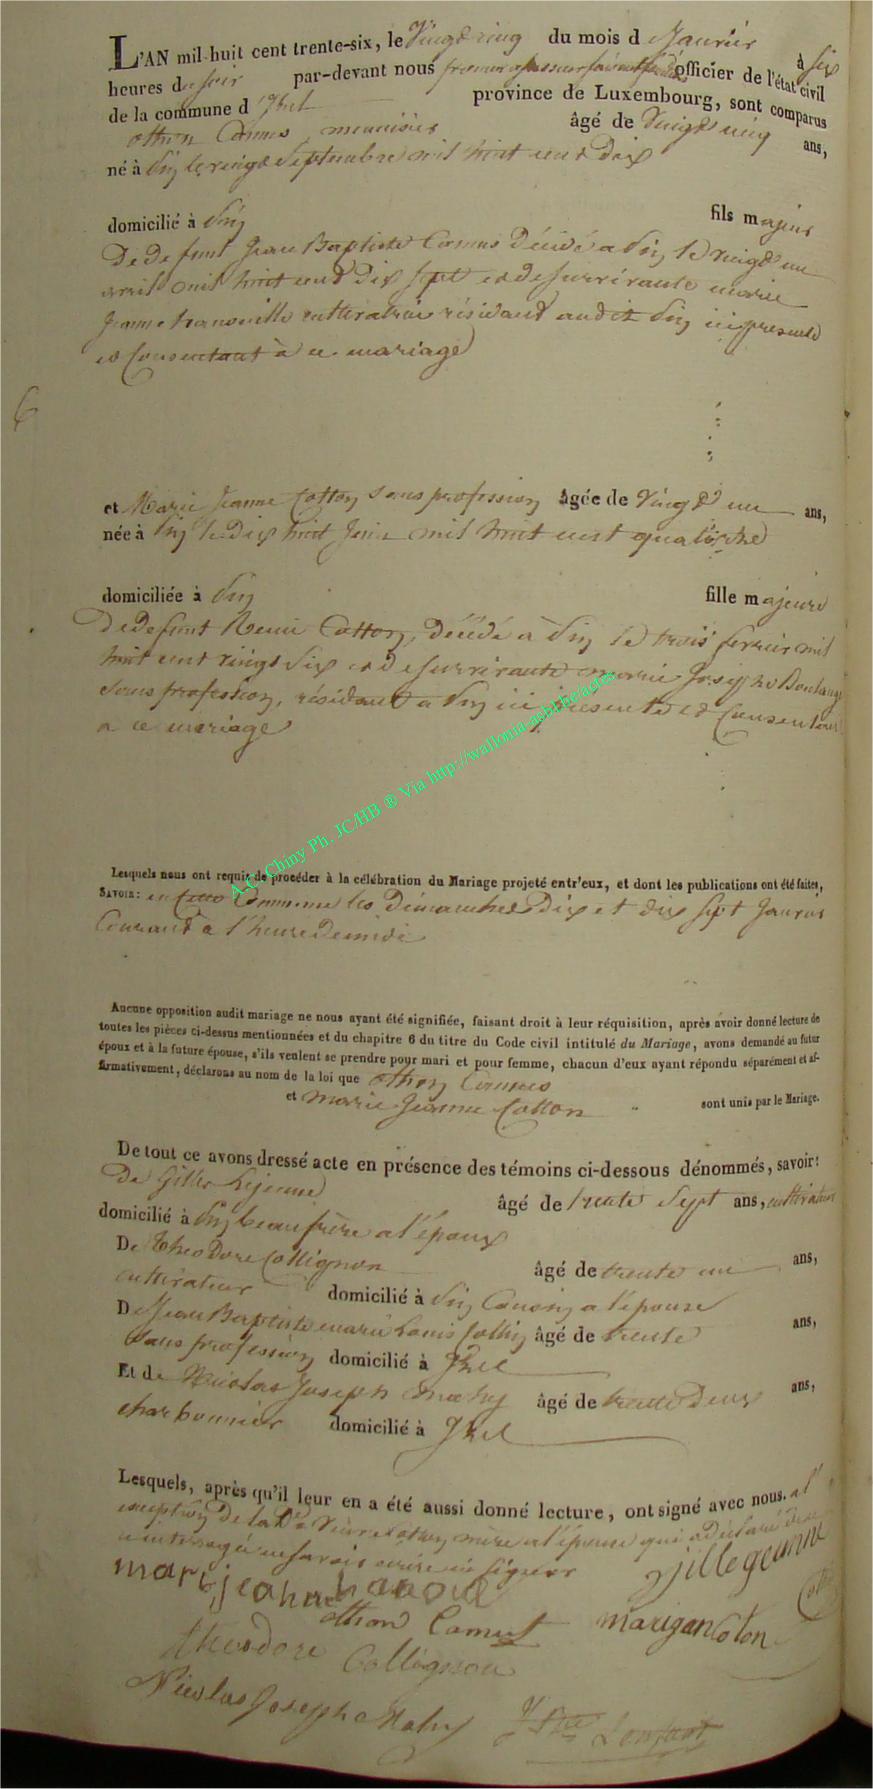 L'AN mil-huit cent trente-six, le Vingt cinq du mois d Janvier à six
heures du soir par-devant nous premier assesseur faisant fonctions officier de l'état civil
de la commune d'Izel province de Luxembourg, sont comparus
othon Camus menuisier âgé de Vingt cinq ans,
né à Pin le vingt Septembre mil huit cent Dix
domicilié à Pin fils majeur
De defunt Jean Baptiste Camus Décédé a Pin le vingt un
avril mil huit cent Dix sept et de survivante marie
Jeanne cultivatrice résidant audit Pin ici presente
et Consentant à ce mariage
6
et Marie Jeanne Cotton sans profession âgée de Vingt un ans,
née à Pin le Dix huit Juin mil huit cent quatorze
domiciliée à Pin fille majeure
De defunt Remi Cotton, Décédé à Pin le trois fevrier mil
huit cent vingt Six et de survivante marie Josephe Boulanger
Sans profession, résidant a Pin ici presente et Consentant
a ce mariage
Lesquels nous ont requis de procéder à la célébration du Mariage projeté entr'eux, et dont les publications ont été faites,
SAVOIR: en cette Commune les Dimanches Dix et dix sept Janvier
Courant a l'heure De midi
Aucune opposition audit mariage ne nous ayant été signifiée, faisant droit à leur réquisition, après avoir donné lecture de
toutes les pièces ci-dessus mentionnées et du chapitre 6 du titre du Code civil intitulé du Mariage, avons demandé au futur
époux et à la future épouse, s'ils veulent se prendre pour mari et pour femme, chacun d'eux ayant répondu séparément et af-
firmativement, déclarons au nom de la loi que othon Camus
et marie Jeanne Cotton sont unis par le Mariage.
De tout ce avons dressé acte en présence des témoins ci-dessous dénommés, savoir:
De Gilles Lejeune âgé de trente Sept ans, cultivateur
domicilié à Pin beau frère a l'époux
De théodore Collignon âgé de trente un ans,
cultivateur domicilié à Pin Cousin a l'épouse
De Jean Baptiste marie Louis âgé de trente ans,
Sans profession domicilié à Izel
Et de Nicolas Joseph mahy âgé de trente Deux ans,
charbonnier domicilié à Izel
Lesquels, après qu'il leur en a été aussi donné lecture, ont signé avec nous. a l'
exception De la De Veuve Cotton mère a l'épouse qui a déclaré
interrogée ne savoir écrire ni signer
marijeanne gillegeunne
othon Camus marigan Coton
théodore Collignon
Nicolas Josephe Mahy
A.C. Chiny Ph. JC/HB ® Via http://wallonia-asbl.be/actes